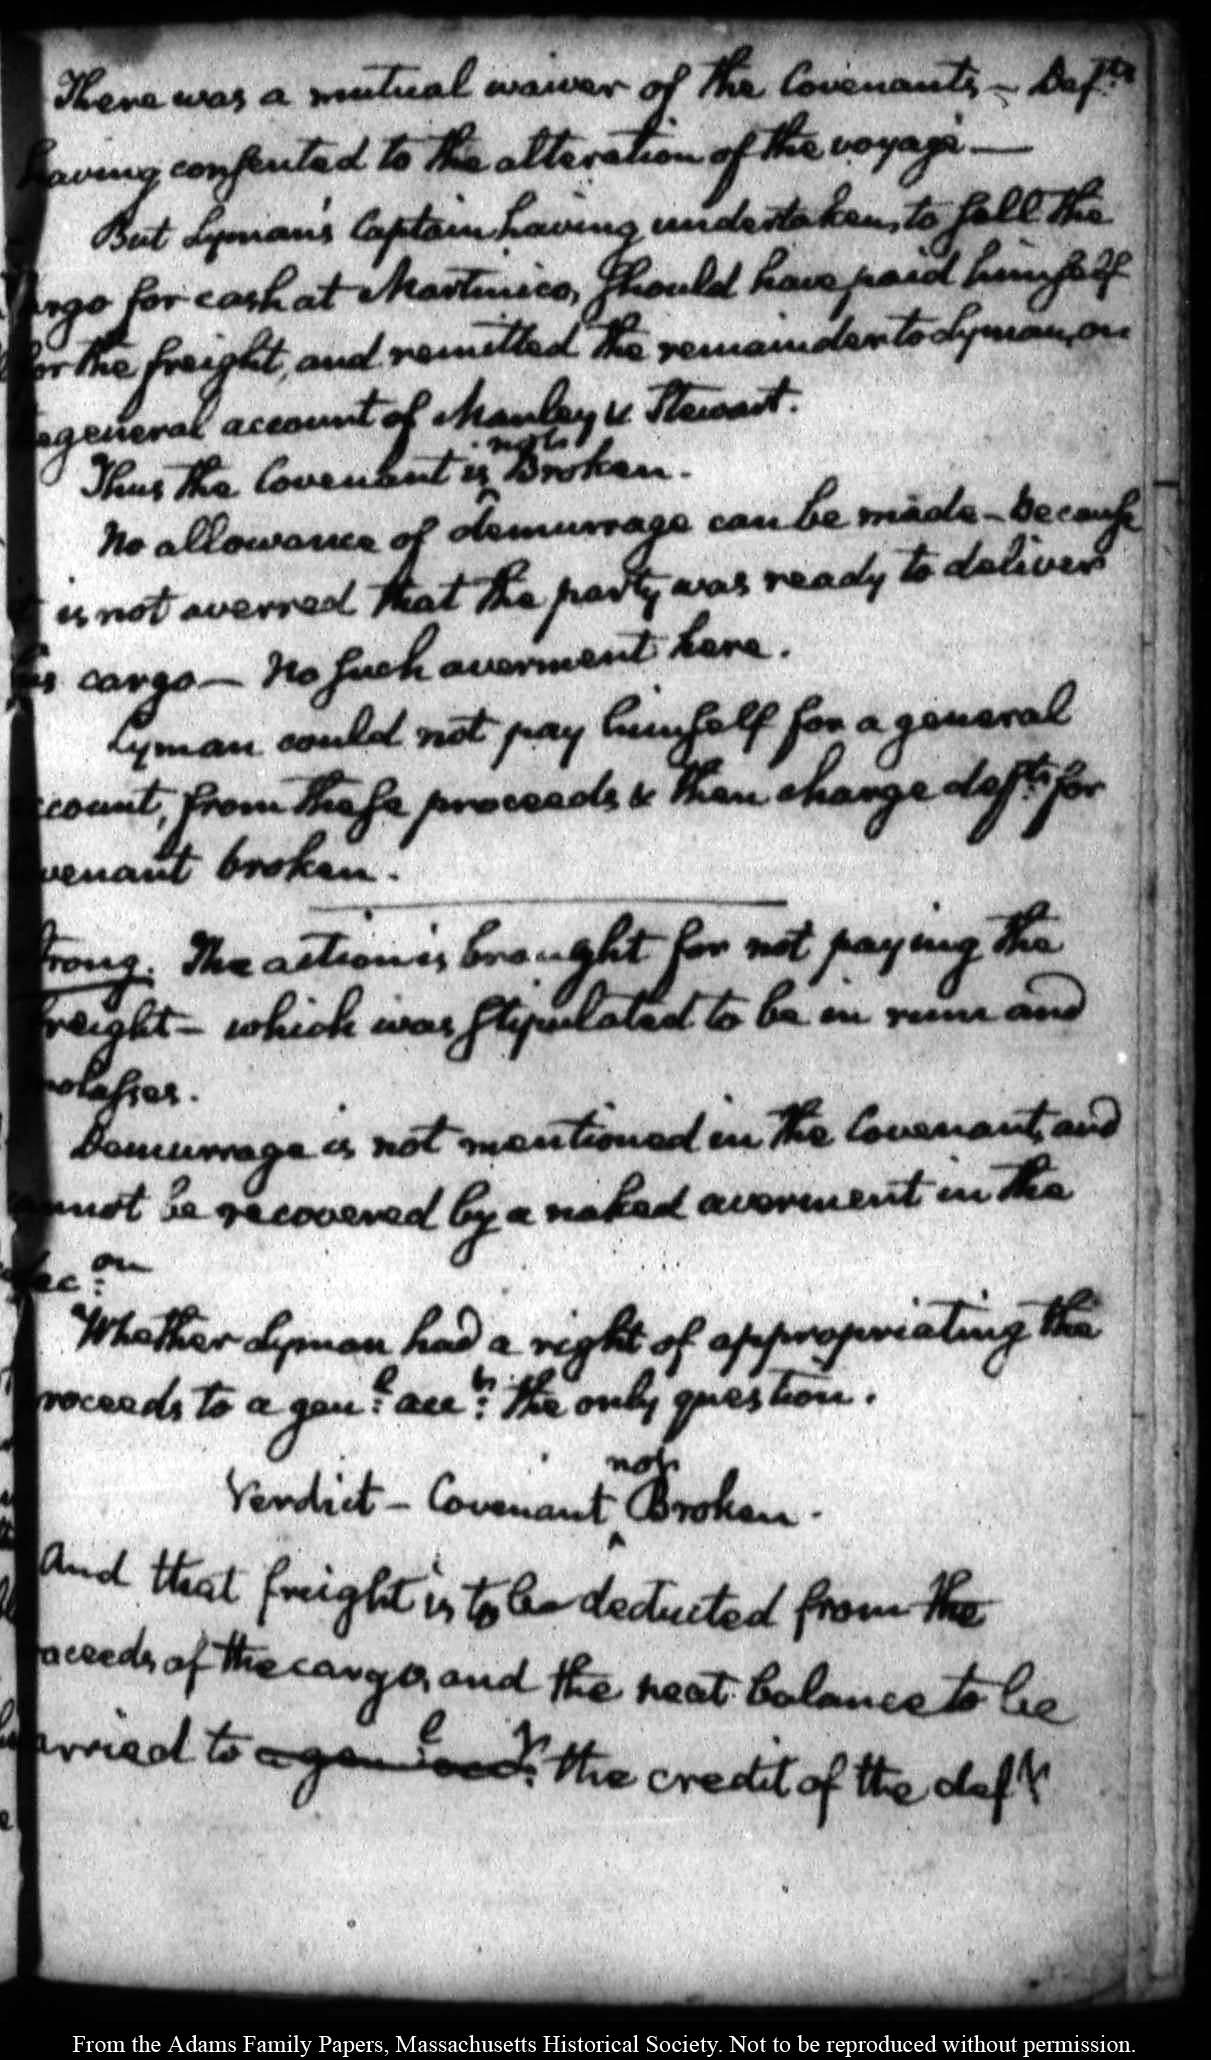 There was a mutual waiver of the Covenants – Defts
having consented to the alteration of the voyage —
But Lyman's Captain having undertaken, to sell the
argo for cash at Martinico, should have paid himself
for the freight, and remitted the remainder to Lyman, on
general account of Manley & Stewart.
not
Thus the Covenant is ^ Broken.
No allowance of demurrage can be made – because
is not averred that the party was ready to deliver
his cargo — No such averment here.
Lyman could not pay himself for a general
ccount, from these proceeds & then charge defts for
venant broken.
trong. The action is brought for not paying the
freight – which was stipulated to be in rum and
molasses.
Demurrage is not mentioned in the Covenant, and
annot be recovered by a naked averment in the
dec:on
Whether Lyman had a right of appropriating the
roceeds to a gen:l acc:t the only question.
not
Verdict – Covenant ^ Broken.
And that freight is to be deducted from the
oceeds of the cargo, and the neat balance to be
arried to a gen:l acc:t the credit of the defts
From the Adams Family Papers, Massachusetts Historical Society. Not to be reproduced without permission.